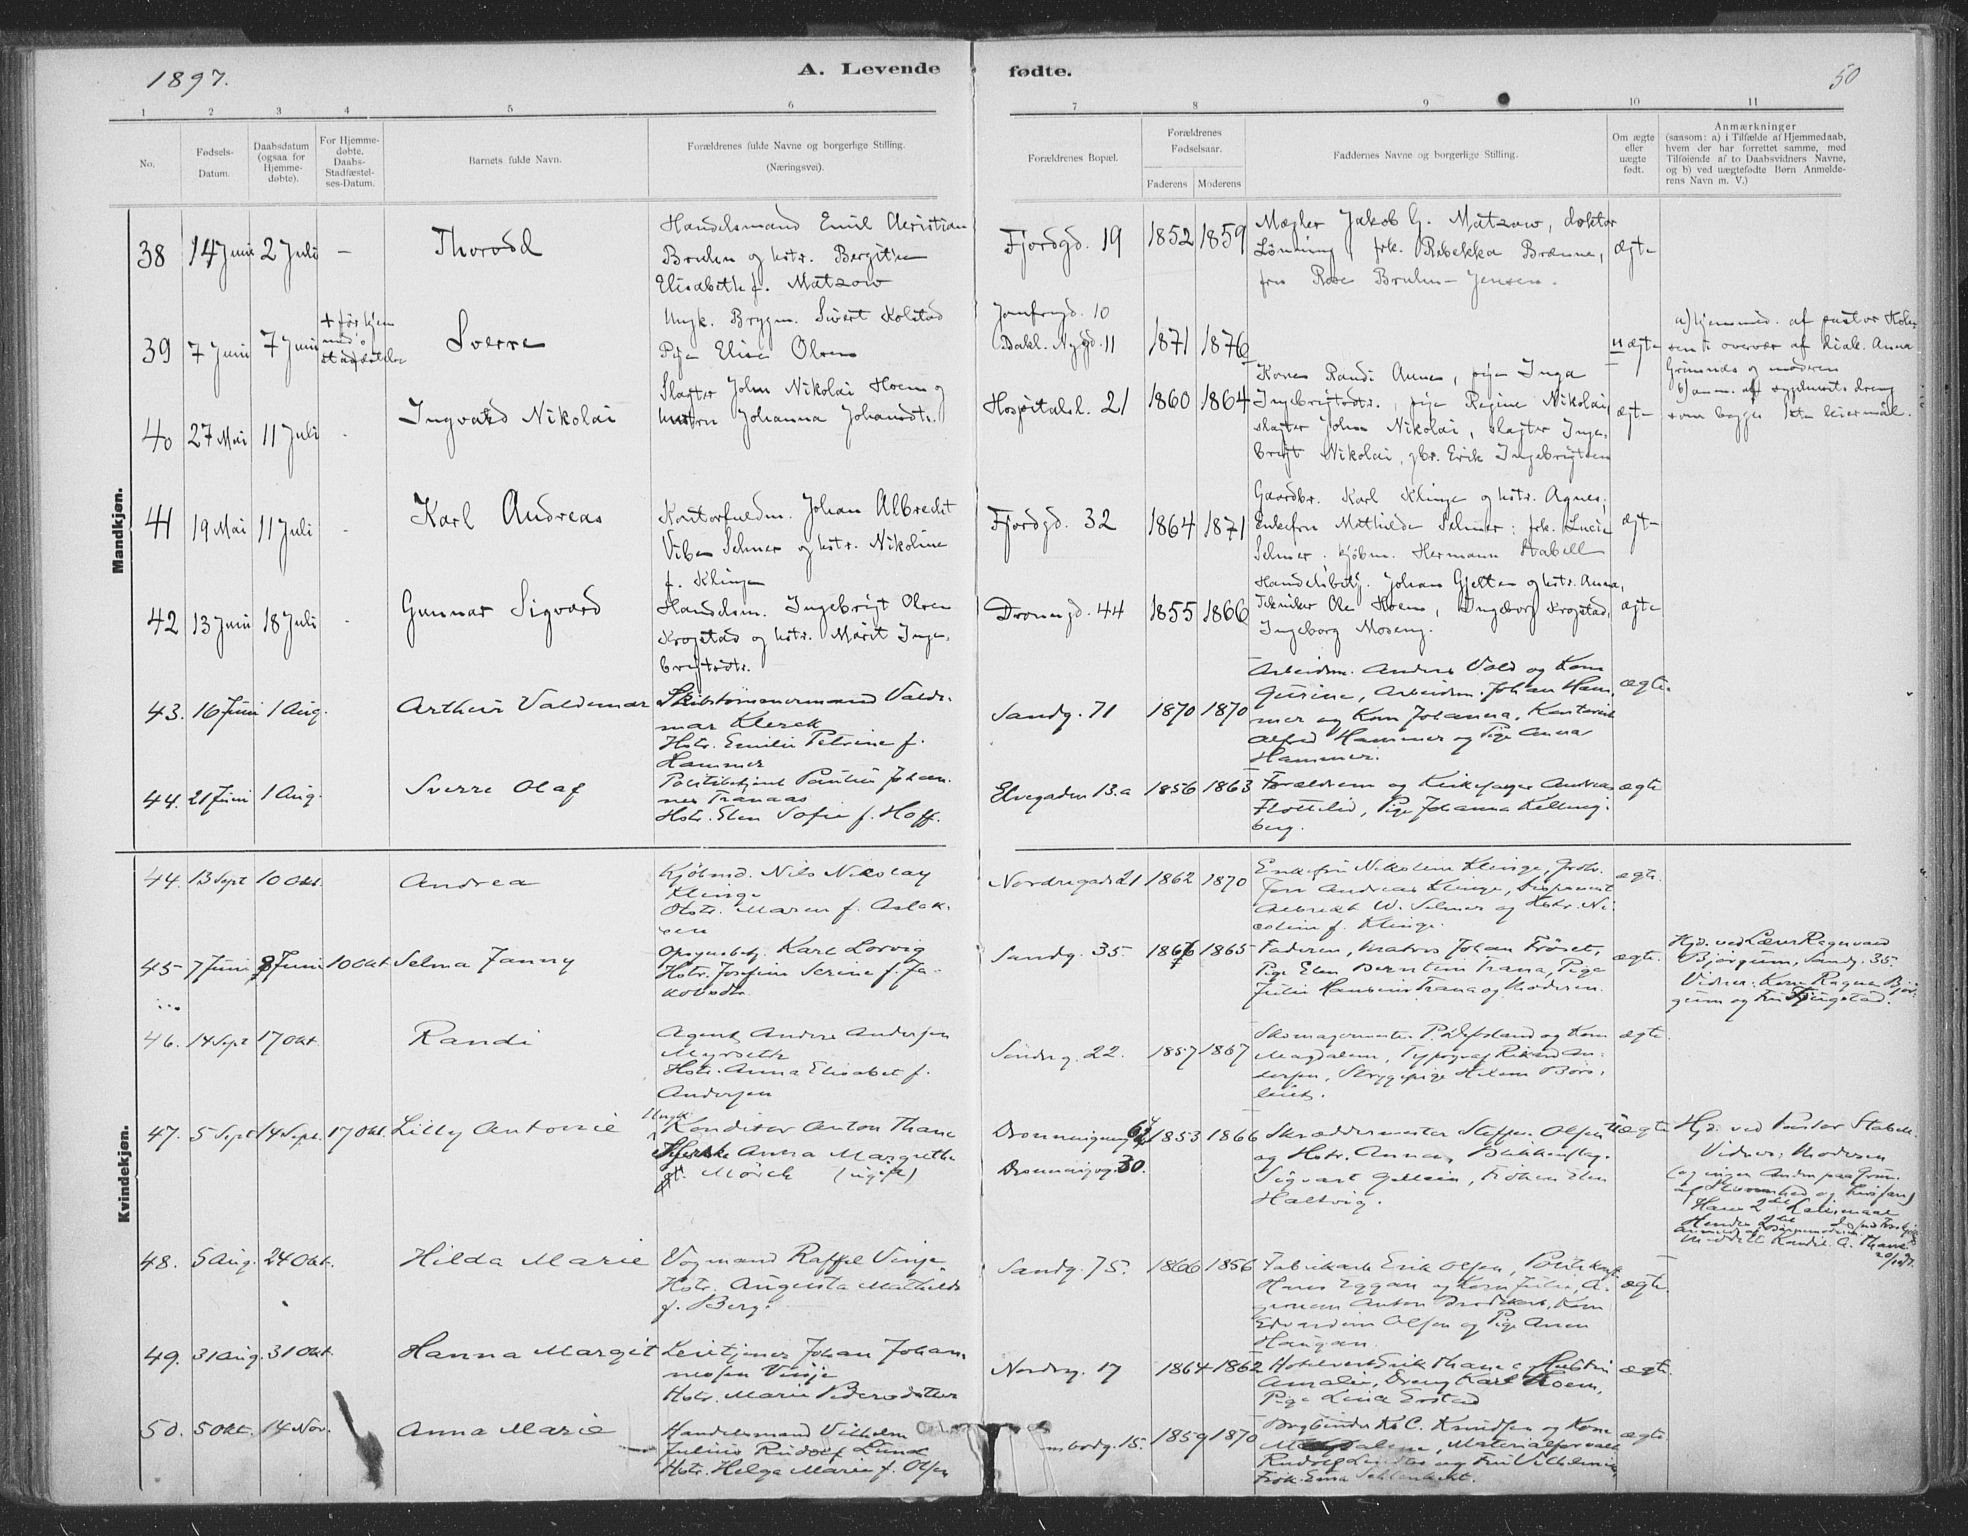 1897.
A. Levende fødte.
50
1 2 3 4 5 6 7 8 9 10 11
No.
Fødsels-
Datum.
Daabsdatum
(ogsaa for
Hjemme-
døbte).
For Hjemme-
døbte.
Daabs-
Stadfæstel-
ses-Datum.
Barnets fulde Navn.
Forældrenes fulde Navne og borgerlige Stilling.
(Næringsvei).
Forældrenes Bopæl.
Forældrenes
Fødselsaar.
Faderens Moderens
Faddernes Navne og borgerlige Stilling.
Om ægte
eller
uægte
født.
Anmærkninger
(saasom: a) i Tilfælde af Hjemmedaab,
hvem der har forrettet samme, med
Tilføiende af to Daabsvidners Navne,
og b) ved uægtefødte Børn Anmelde-
rens Navn m. V.)
Mandkjøn.
38 14 Juni 2 Juli - Thorodd
Handelsmand Emil Christian
Bruhn og hstr. Bergithe
Elisabeth f. Matzow
Fjordgd. 19 1852 1859
Mægler Jakob G. Matzow, doktor
Lønning, frk. Rebekka Brænne,
fru Rose Bruhn-Jensen.
ægte
39 7 Juni 7 Juni
+ før hjem
med's
stadfæstelse
Sverre
Ungk. Brygm. Sivert Kolstad
Pige Elise Olsen
Jomfrugd. 10
Bakl. Nygd. 11
1871 1876
uægte
a) hjemmed. af pastor Hole
i overvær af diak. Anna
Grimnds og moderen
b) anm. af
som begges 1ste leiermål.
40 27 Mai 11 Juli - Ingvald Nikolai
Slagter John Nikolai Hoem og
hustru Johanna Johansdtr.
Hospitalsl. 21 1860 1864
Kone Randi Aunes, pige Inga
Ingebrigtsdtr., pige Regine Nikolai,
slagter John Nikolai, slagter Inge-
brigt Nikolai, gbr. Erik Ingebrigtsen
ægte
41 19 Mai 11 Juli - Karl Andreas
Kontorfuldm. Johan Albrecht
Vibe Selmer og hstr. Nikoline
f. Klinge
Fjordgd. 32 1864 1871
Gaardbr. Karl Klinge og hstr. Agnes,
Enkefru Mathilde Selmer, frk. Lucie
Selmer, kjøbm. Hermann Stabell
ægte
42 13 Juni 18 Juli - Gunnar Sigvard
Handelsm. Ingebrigt Olsen
Krogstad og hstr. Marit Inge-
brigtsdtr.
Dronngd. 44 1855 1866
Handelsbetj. Johan Gjetten og hstr. Anna,
Tekniker Ole Hoem, Ingeborg Krogstad,
Ingeborg Moseng.
ægte
43. 16 Juni 1 Aug. Arthur Valdemar
Skibstømmermand Valde-
mar Klerck
Hstr. Emilie Petrine f.
Hammer
Sandg. 71 1870 1870
Arbeidsm. Anders Vold og Kone
Gurine, Arbeidsm. Johan Ham-
mer og Kone Johanna, Kontorist
Alfred Hammer og Pige Anna
Hammer.
ægte
44. 21 Juni 1 Aug. Sverre Olaf
Politibetjent Paulus Johan-
nes Tranaas
Hstr. Elen Sofie f. Hoff.
Elvegaden 13.a 1856 1863
Forældrene og Kirkesanger Andreas
Flottelid, Pige Johanna Kelling-
berg.
ægte
Kvindekjøn.
44. 13 Sept 10 Okt. Andrea
Kjøbmd. Nils Nikolay
Klinge
Hstr. Maren f. Aslak-
sen
Nordregade 21 1862 1870
Enkefru Nikoline Klinge,
Andreas Klinge, Disponent
Albrecht W. Selmer og Hstr. Ni-
coline f. Klinge.
ægte.
45 7 Juni 8 Juni 10 Okt Selma Fanny
Opsynsbetj. Karl Lorvig
Hstr. Josefine Serene f. Ja-
kobsdtr.
Sandg. 35. 1866 1865
Faderen, Matros Johan Frøset,
Pige Elen Berntine Trana, Pige
Julie Hansine Trana og Moderen.
ægte.
Hjd. ved Lærer Ragnvald
Bjørgum, Sandg. 35.
Vidner: Kone Ragna Bjør-
gum og Fru Ljungstad.
46. 14 Sept 17 Okt. Randi
Agent Anders Andersen
Myrseth
Hstr. Anna Elisabet f.
Andersen
Søndreg. 22. 1857 1867
Skomagermester P. Løfsland og Kone
Magdalene, Typograf Rikard An-
dersen, Strygepige Helene Børs-
ægte.
47. 5 Sept 14 Sept. 17 Okt. Lilly Antonie
Ungk. Konditor Anton Thane
Anna Margrethe
Mørck (ugift)
Dronningensg 67
Dronningsg. 30.
1853 1866
Skræddermester Steffen Olsen
og Hstr. Anna, Blikkenslag.
Sigvart Gellein, Frøken Elen
Haltvig.
Uægte
Hjd. ved Pastor Stabell.
Vidner: Moderen
(og ingen Anden paa Grund
af Hastværk og Livsfare)
Hans 2det Leiermaal
Hendes 2det
Kandit. A. Thane
20/10 97.
48. 5 Aug. 24 Okt. Hilda Marie
Vognmand Raffel Vinje.
Hstr. Augusta Mathilde
f. Berg.
Sandg. 75. 1866 1856
Fabrikarb. Erik Olsen, Politikonst.
Hans Eggan og Kone Julie, A-
gronom Anton Brodtkorb, Kone
Edvardine Olsen og Pige Anna
Haugan.
ægte.
49. 31 Aug. 31 Okt. Hanna Margit
Leietjener Johan Johan-
nesen Vinje
Hstr. Marie Pedersdatter
Nordreg. 17 1864 1862
Hotelvert Erik Thane, Hustru
Amalie, Dreng Karl Hoem,
Pige Lina Ersstad
ægte
50. 5 Okt. 14 Nov. Anna Marie
Handelsmand Vilhelm
Julius Rudolf Lund
Hstr. Helga Marie f. Olsen
15. 1859 1870
Bogbinder K. C. Knudsen og Kone
Magdalene, Materialforvalt.
Rudolf og Fru Vilhelmine,
Frøk. Erna
ægte.